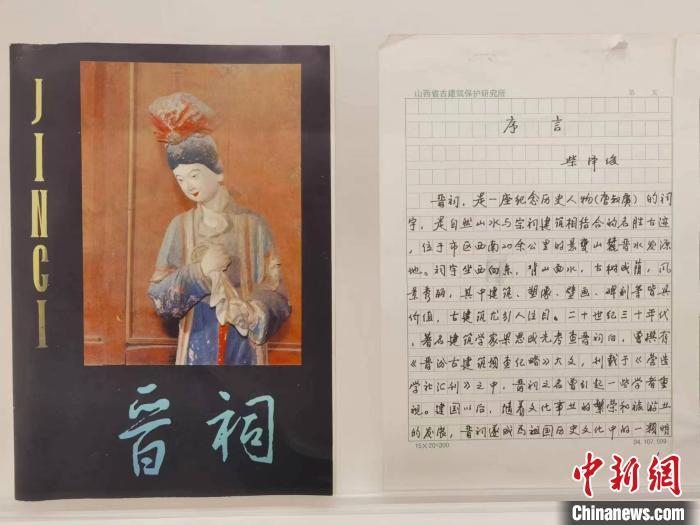 JINCI
晋祠
山西省古建筑保护研究所 第 页
序言
柴泽俊
晋祠，是一座纪念历史人物(唐叔虞)的祠
宇，是自然山水与宗祠建筑相结合的名胜古迹，
位于市区西南20余公里的悬瓮山麓晋水发源
地。祠宇坐西向东，背山面水，古树成荫，风
景秀丽，其中建筑、塑像、壁画、碑刻等皆具
价值，古建筑尤引人注目。二十世纪三十年代，
著名建筑学家梁思成先考查晋祠后，曾撰有
《晋汾古建筑预查纪略》大文，刊载于《营造
学社汇刊》之中，晋祠之名曾引起一些学者重
视。建国以后，随着文化事业的繁荣和旅游业
的发展，晋祠遂成为祖国历史文化中的一颗明
15×20=300 94.107.599
中新网
Chinanews.com